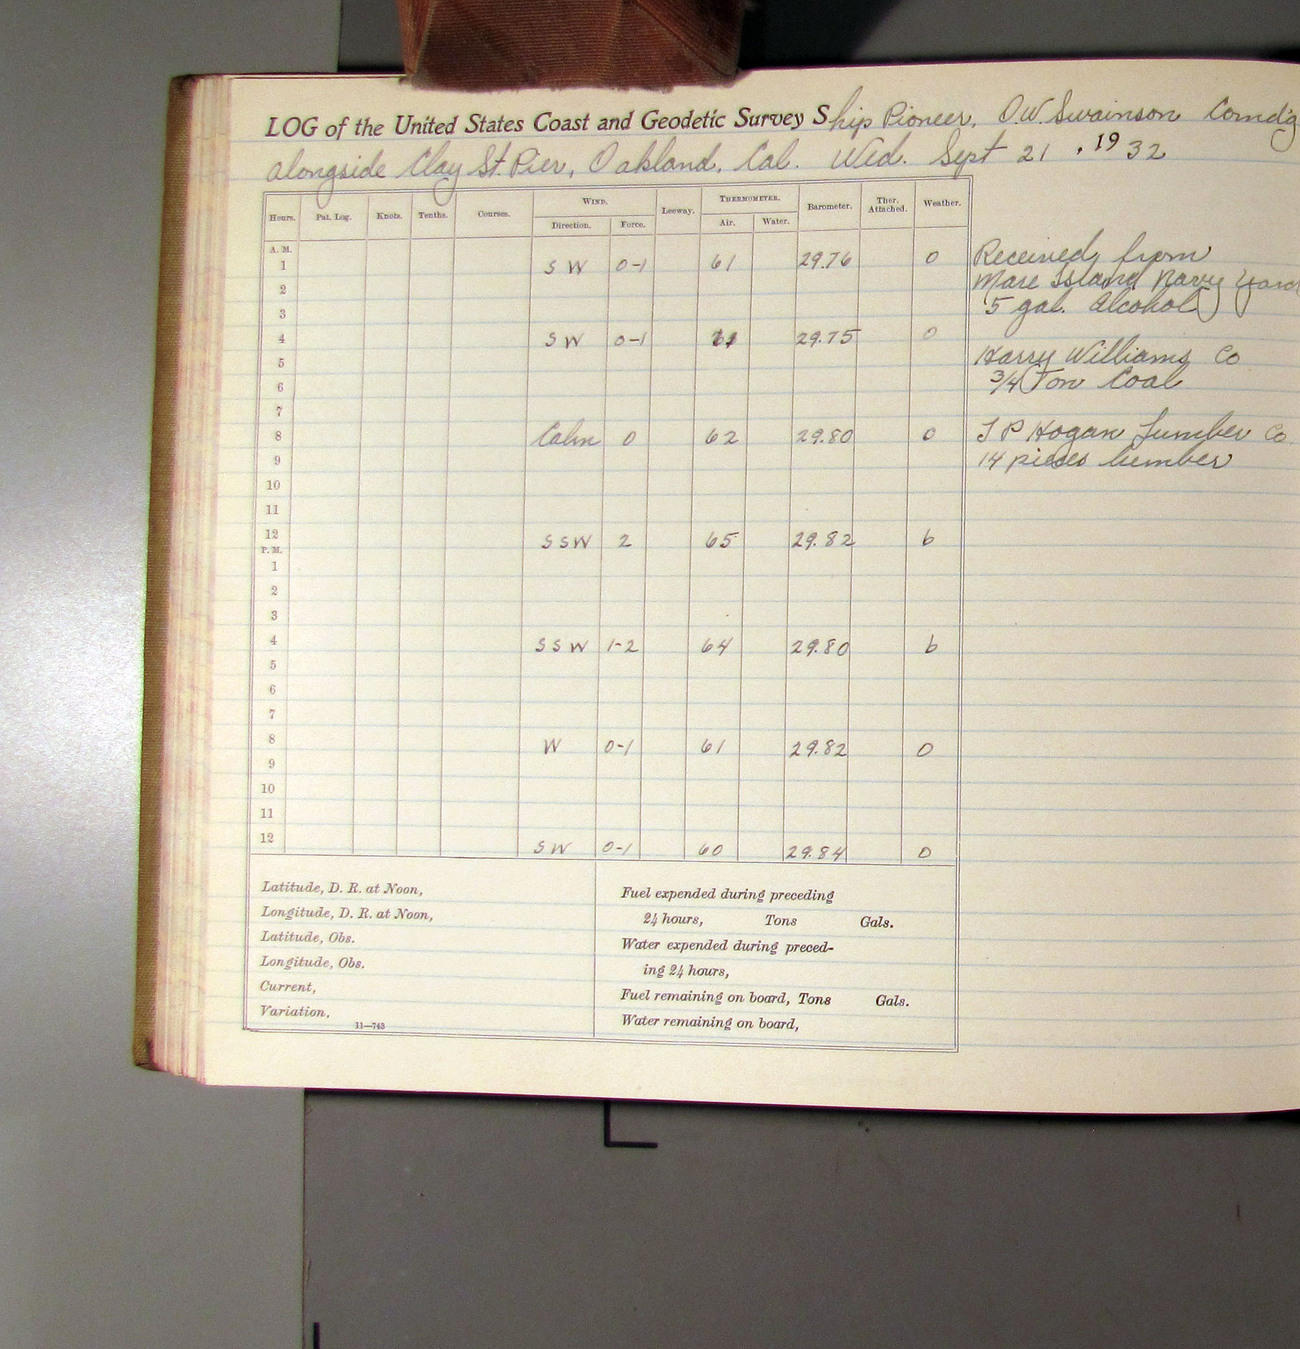 LOG of the United States Coast and Geodetic Survey Ship Pioneer, O.W. Swainson Comd'g
alongside Clay St. Pier, Oakland, Cal. Wed. Sept 21, 1932
Hours. Pat. Log. Knots. Tenths. Courses. WIND. Leeway. THERMOMETER. Barometer. Ther. Attached. Weather.
Direction. Force. Air. Water.
A. M.
1 SW 0-1 61 29.76 0
2
3
4 SW 0-1 61 29.75 0
5
6
7
8 Calm 0 62 29.80 0
9
10
11
12 SSW 2 65 29.82 b
P. M.
1
2
3
4 SSW 1-2 64 29.80 b
5
6
7
8 W 0-1 61 29.82 0
9
10
11
12 SW 0-1 60 29.84 0
Received from
Mare Island Navy Yard
5 gal. Alcohol
Harry Williams Co
3/4 Ton Coal
T P Hogan Lumber Co.
14 pieces lumber
Latitude, D. R. at Noon,
Longitude, D. R. at Noon,
Latitude, Obs.
Longitude, Obs.
Current,
Variation,
11—743
Fuel expended during preceding
24 hours, Tons Gals.
Water expended during preced-
ing 24 hours,
Fuel remaining on board, Tons Gals.
Water remaining on board,